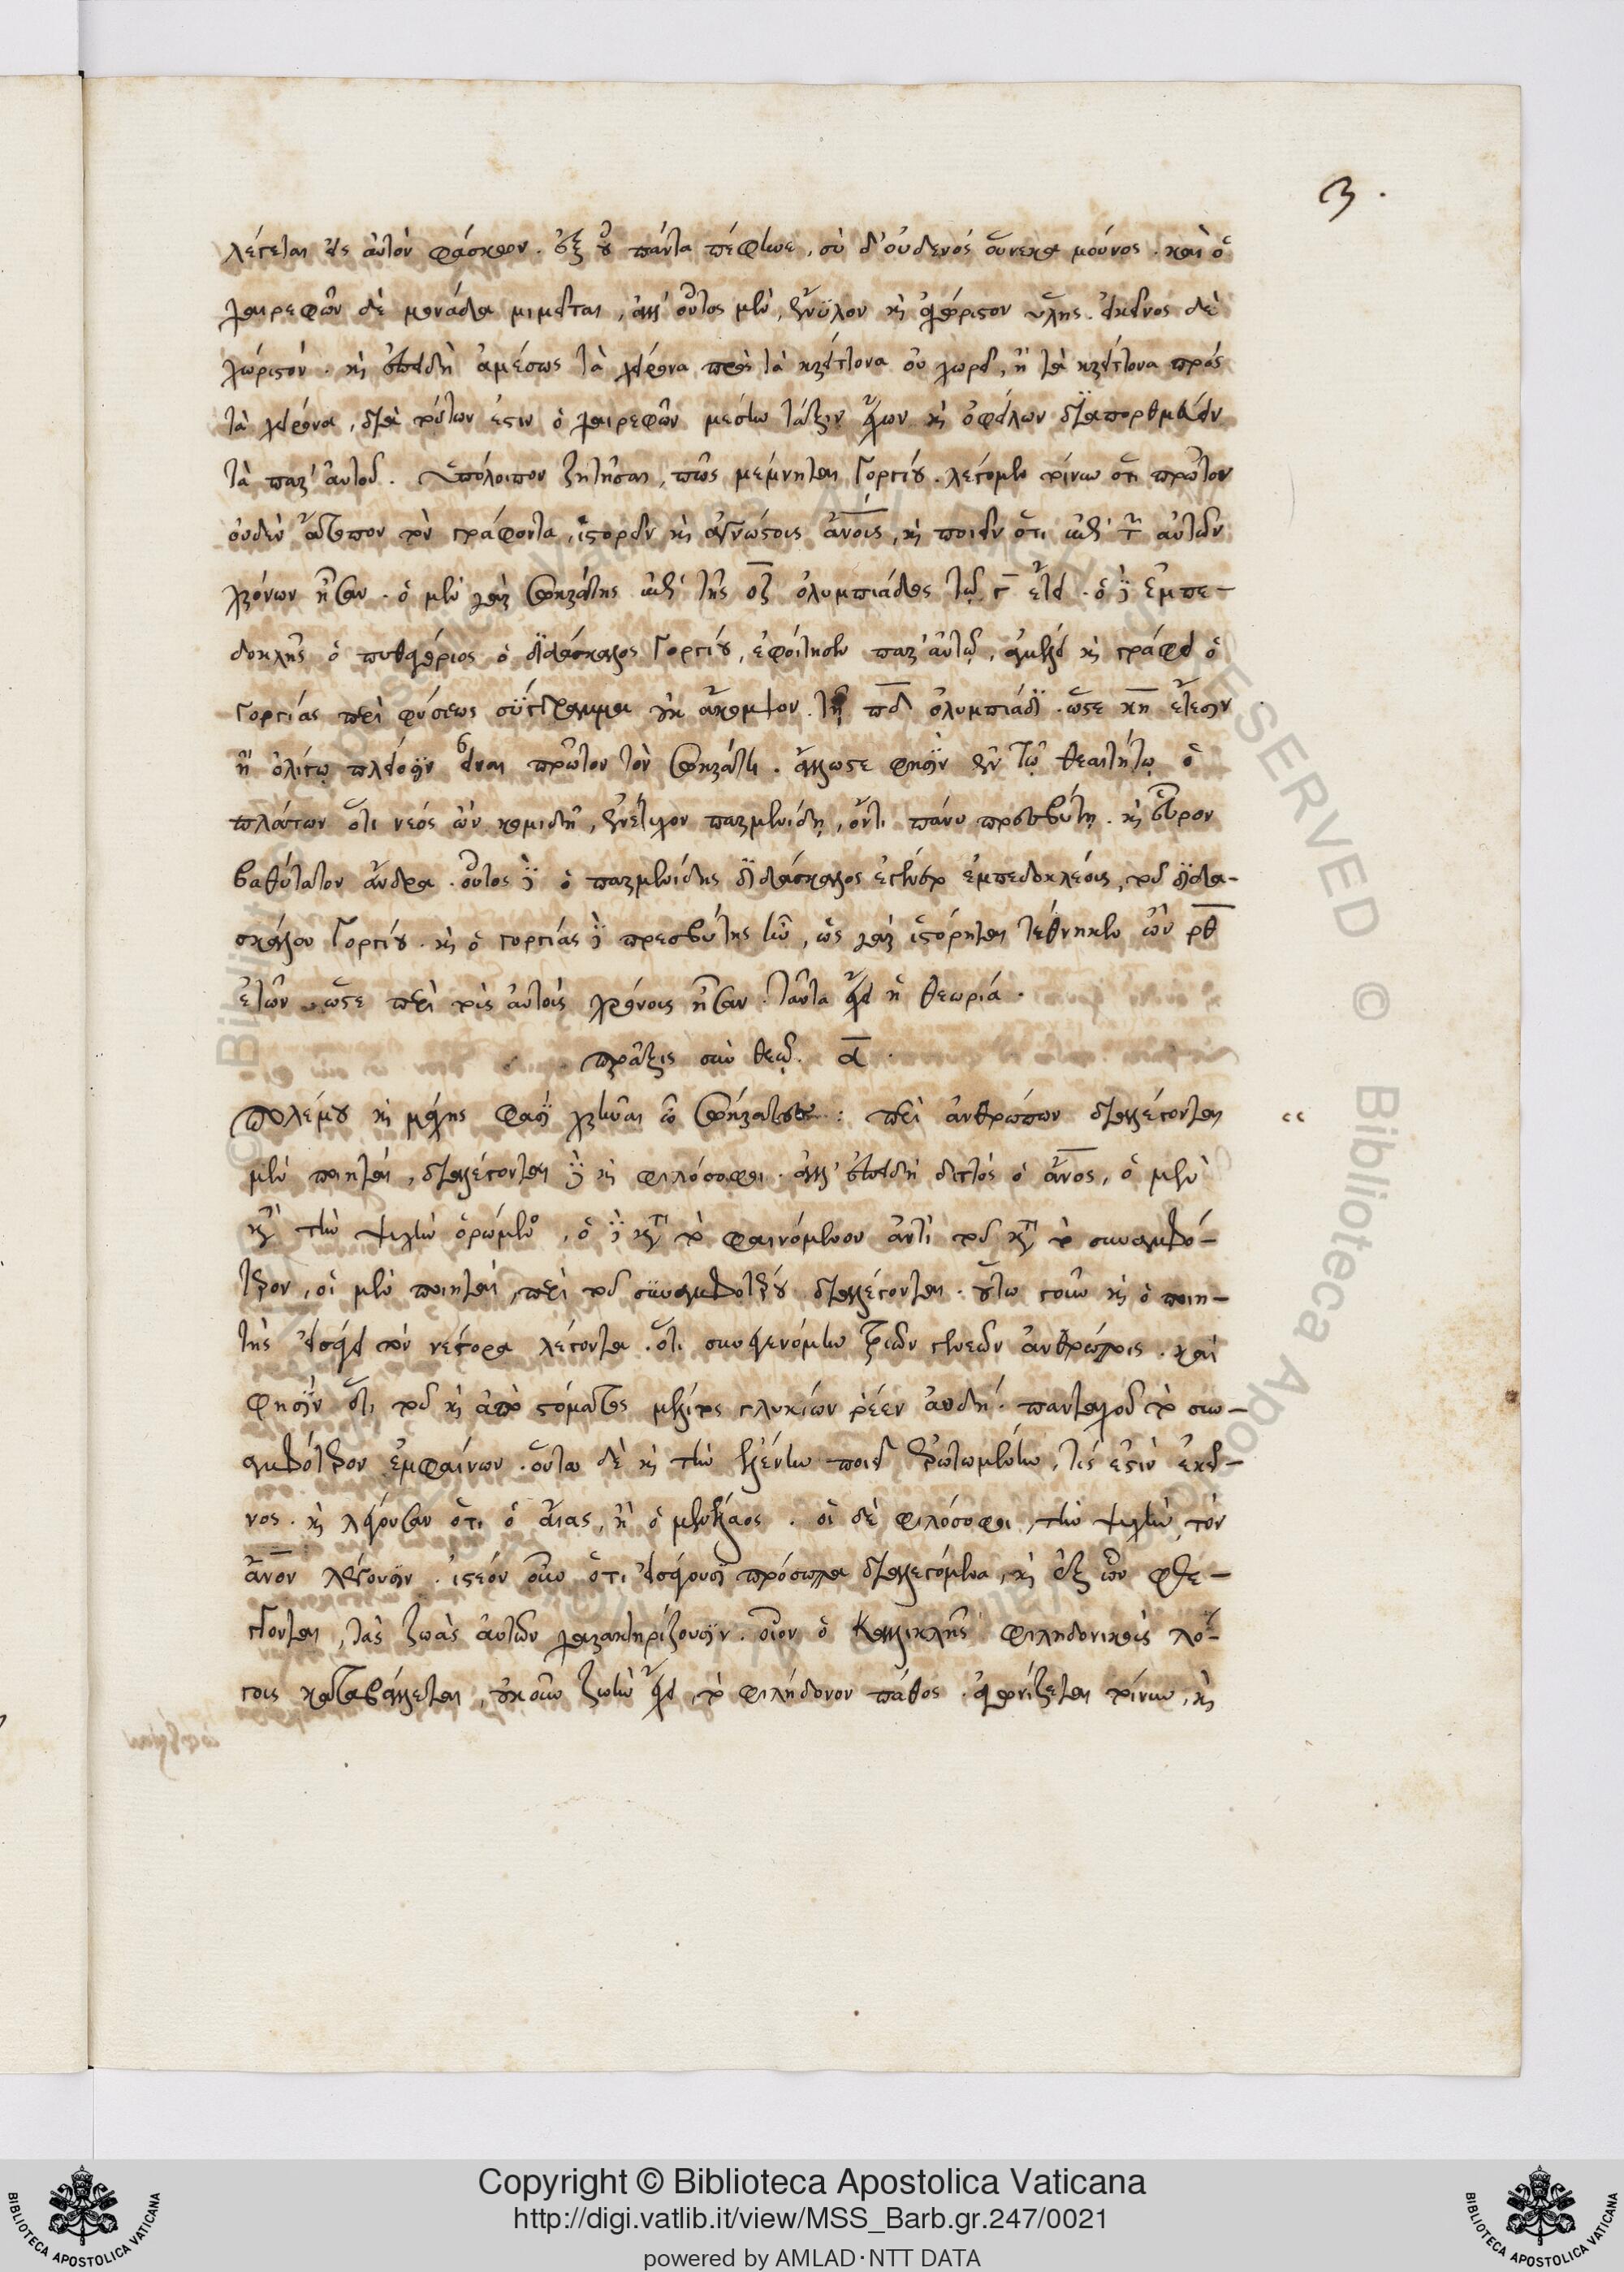 3.
λέγεται εἰς αὐτὸν φάσκον. ἐξ οὗ πάντα πέφηνε, σὺ δ' οὐδενὸς οὕνεκα μοῦνος. καὶ ὁ
χαιρεφῶν δὲ μονάδα μιμεῖται, ἀλλ' οὗτος μὲν, ἔνϋλον κὴ ἀχώριστον ὕλης. ἐκεῖνος δὲ
χωριστόν. κὴ ἐπειδὴ ἀμέσως τὰ χείρονα πρὸς τὰ κρείττονα οὐ χωρεῖ, ἢ τὰ κρείττονα πρὸς
τὰ χείρονα, διὰ τοῦτον ἐστιν ὁ χαιρεφῶν μέσην τάξιν ἔχων κὴ ὀφείλων διαπορθμεύειν
τὰ παρ' αὐτοῦ. Ὑπόλοιπον ζητῆσαι, πῶς μέμνηται Γοργίου. λέγομεν τοίνυν ὅτι πρῶτον
οὐδὲν ἄτοπον τὸν γράφοντα, ἱστορεῖν κὴ ἀγνώστοις ἀνοις, κὴ ποιεῖν ὅτι ἐπὶ τ αὐτῶν
χρόνων ἦσαν. ὁ μὲν γὰρ Σωκράτης ἐπὶ τῆς οζ ὀλυμπιάδος τῷ γ ἔτει. ὁ δὲ ἐμπε-
δοκλῆς ὁ πυθαγόριος ὁ διδάσκαλος Γοργίου, ἐφοίτησεν παρ' αὐτῷ, ἀμέλει κὴ γράφει ὁ
Γοργίας περὶ φύσεως σύγγραμμα οὐκ ἄκομψον. τῇ πδ ὀλυμπιάδι. ὥστε κη ἔτεσιν
ἢ ὀλίγῳ πλείοσιν εἶναι πρῶτον τὸν Σωκράτη. ἄλλωστε φησὶν ἐν τῷ θεαιτήτῳ ὁ
πλάτων ὅτι νεὸς ὢν κομιδῇ, ἐνέτυχον παρμενίδῃ, ὄντι πάνυ πρεσβύτῃ. κὴ εὗρον
βαθύτατον ἄνδρα. οὗτος δὲ ὁ παρμενίδης διδάσκαλος ἐγένετο ἐμπεδοκλέους, τοῦ διδα-
σκάλου Γοργίου. κὴ ὁ γοργίας δὲ πρεσβύτης ἦν, ὡς γὰρ ἱστόρηται τέθνηκεν ὢν ρθ
ἐτῶν. ὥστε περὶ τοὺς αὐτοὺς χρόνους ἦσαν. ταῦτα ἔχει ἡ θεωρία.
πρᾶξις σὺν θεῷ. α.
Πολέμου κὴ μάχης φασὶ χρῆναι ὦ Σώκρατες: περὶ ἀνθρώπων διαλέγονται
μὲν ποιηταὶ, διαλέγονται δὲ κὴ φιλόσοφοι. ἀλλ' ἐπειδὴ διττὸς ὁ ἄνος, ὁ μὲν
κατὰ τὴν ψυχὴν ὁρώμενος, ὁ δὲ κατὰ τὸ φαινόμενον ἀντὶ τοῦ κατὰ τὸ συναμφό-
τερον, οἱ μὲν ποιηταὶ, περὶ τοῦ συναμφοτέρου διαλέγονται. οὕτω γοῦν κὴ ὁ ποιη-
τὴς εἰσάγει τὸν νέστορα λέγοντα. ὅτι συνγενόμην τριῶν γενεῶν ἀνθρώποις. καὶ
φησὶν ὅτι τοῦ κὴ ἀπὸ στόματος μέλιτος γλυκίων ῥέεν αὐδή. πανταχοῦ τὸ συν-
αμφότερον ἐμφαίνων. οὕτω δὲ κὴ τὴν ἑλένην ποιεῖ ἐρωτωμένην, τίς ἐστὶν ἐκεῖ-
νος. κὴ λέγουσαν ὅτι ὁ αἴας, ἢ ὁ μενέλαος. οἱ δὲ φιλόσοφοι, τὴν ψυχὴν, τὸν
ἄνον λέγουσιν. ἰστέον οὖν ὅτι εἰσάγουσι πρόσωπα διαλεγόμενα, κὴ ἐξ ὧν φθε-
γγονται, τὰς ζωὰς αὐτῶν χαρακτηρίζουσιν. οἷον ὁ Καλλικλῆς φιληδονικοῖς λό-
γοις καταβάλλεται, οὐκοῦν ζωὴν ἔχει, τὸ φιλήδονον πάθος. ἀγωνίζεται τοίνυν, κὴ
Copyright © Biblioteca Apostolica Vaticana
http://digi.vatlib.it/view/MSS_Barb.gr.247/0021
powered by AMLAD·NTT DATA